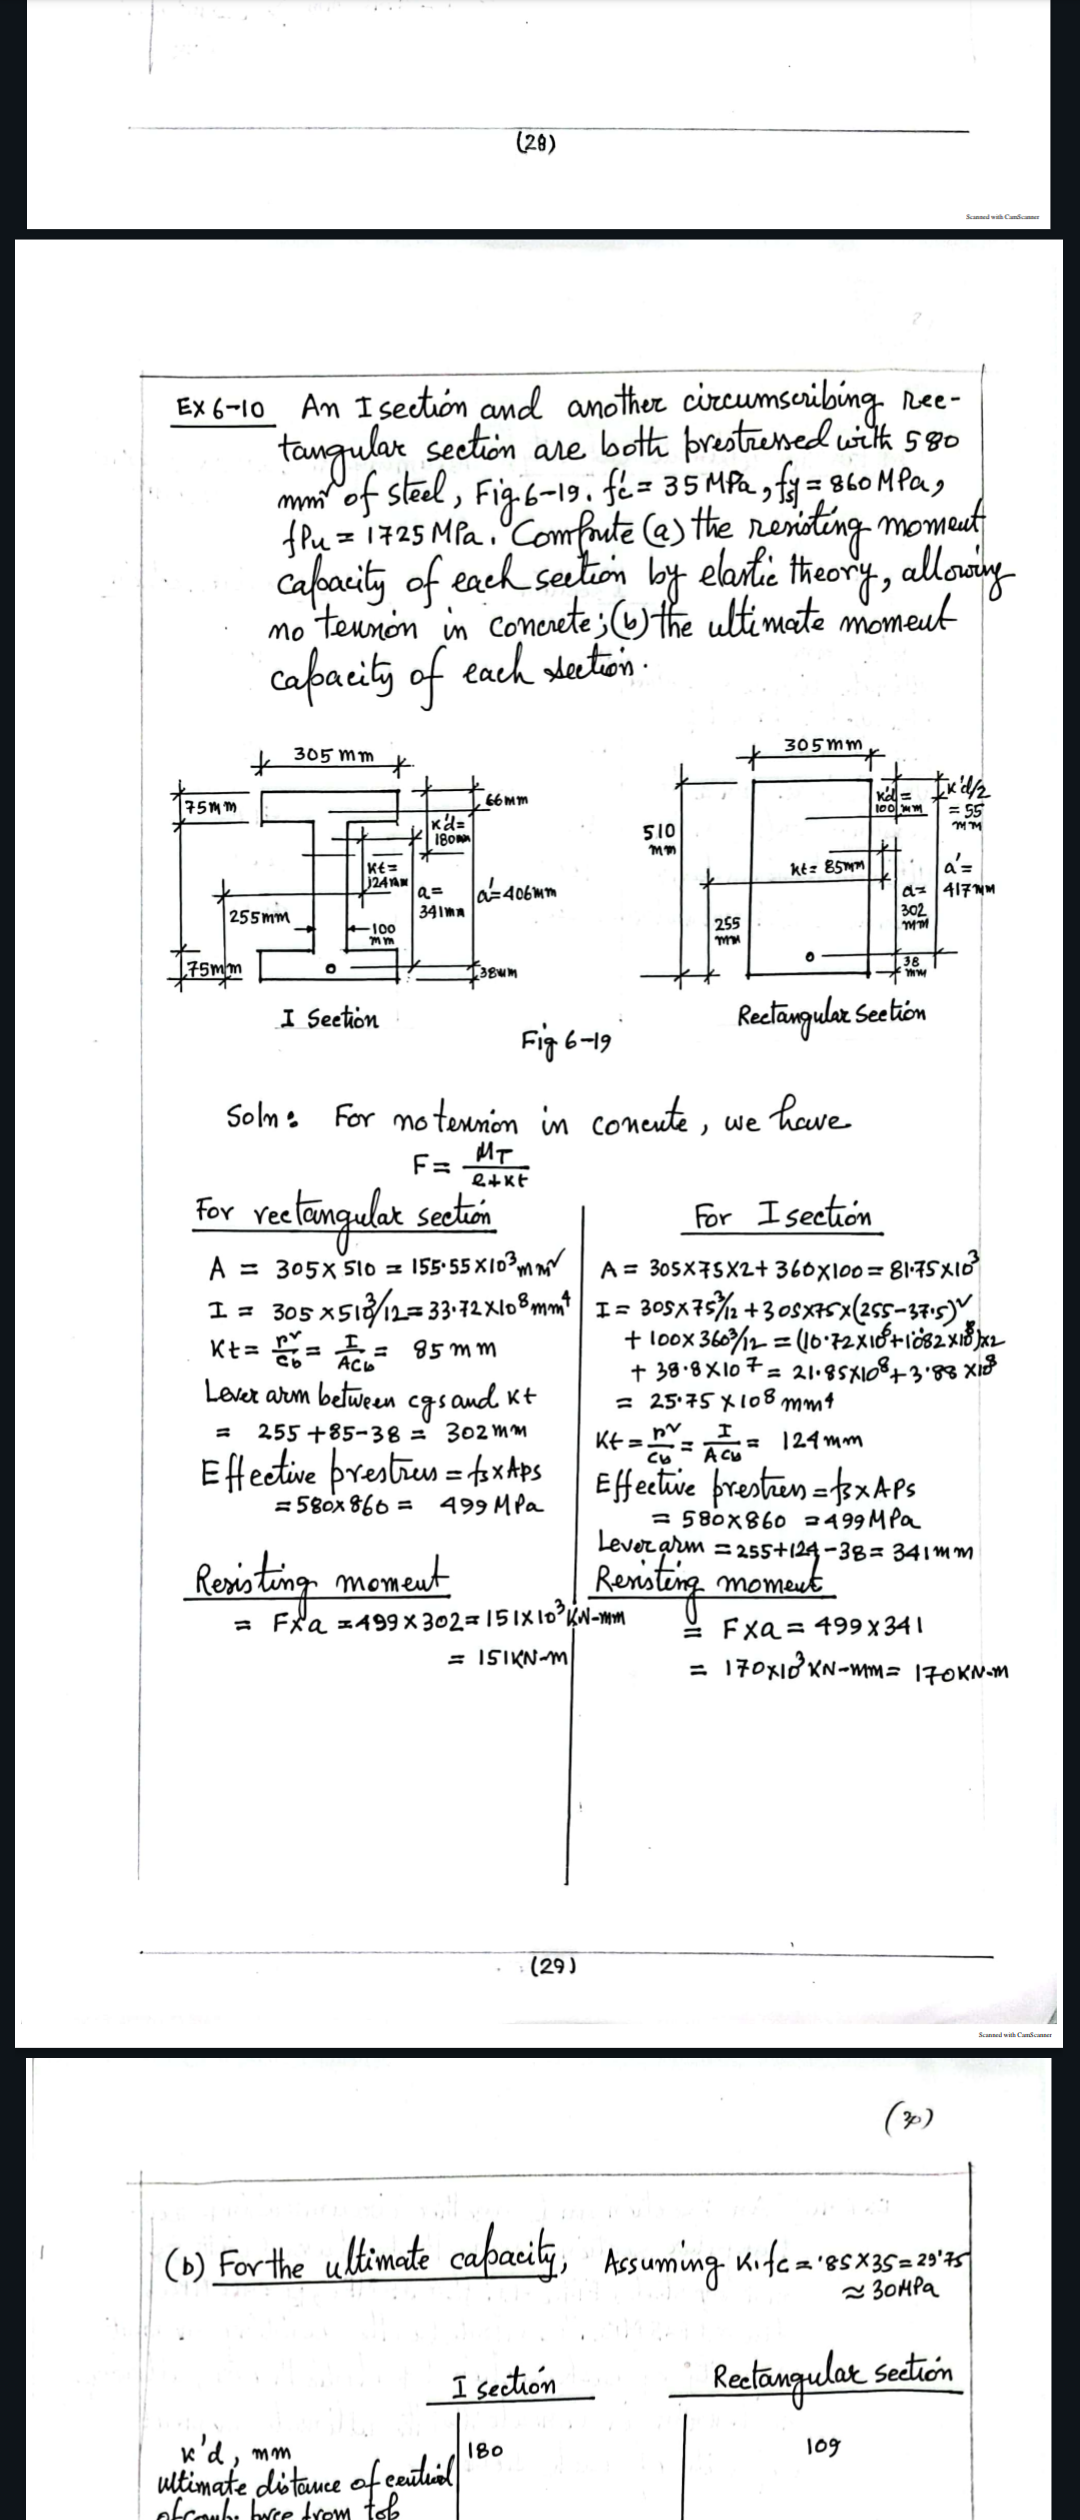 (28)
Scanned with CamScanner
EX 6-10 An I section and another circumscribing rec-
tangular section are both prestressed with 580
mm² of steel, Fig 6-19. f'c = 35 MPa, fs = 860 MPa,
fPu = 1725 MPa. Compute (a) the resisting moment
capacity of each section by elastic theory, allowing
no tension in concrete; (b) the ultimate moment
capacity of each section.
305 mm
75mm
66mm
k'd=
180mm
Kt=
124mm
a=
341mm
a'=406mm
255mm
100
mm
75mm
38mm
I Section
305mm
k'd=
100 mm
k'd/2
= 55
mm
510
mm
kt= 85mm
a'=
417mm
a=
302
mm
255
mm
38
mm
Rectangular Section
Fig 6-19
Soln: For no tension in concrete, we have
F = MT/e+Kt
For rectangular section
A = 305×510 = 155.55×10³mm²
I = 305×510³/12 = 33.72×10⁸mm⁴
Kt = r²/Cb = I/ACb = 85 mm
Lever arm between cgs and Kt
= 255+85-38 = 302mm
Effective prestress = fs×Aps
= 580×860 = 499 MPa
Resisting moment
= F×a = 499×302 = 151×10³ KN-mm
= 151KN-m
For I section
A = 305×75×2 + 360×100 = 81.75×10³
I = 305×75³/12 + 305×75×(255-37.5)²
+ 100×360³/12 = (10.72×10⁶+1082×10⁶)×2
+ 38.8×10⁷ = 21.85×10⁸+3.88×10⁸
= 25.75×10⁸ mm⁴
Kt = r²/Cb = I/ACb = 124mm
Effective prestress = fs×APs
= 580×860 = 499MPa
Lever arm = 255+124-38 = 341mm
Resisting moment
= F×a = 499×341
= 170×10³ KN-mm = 170KN-m
(29)
Scanned with CamScanner
(30)
(b) For the ultimate capacity, Assuming K₁fc = .85×35 = 29.75
≈ 30MPa
I section
Rectangular section
k'd, mm
180
109
ultimate distance of
of comp. force from top